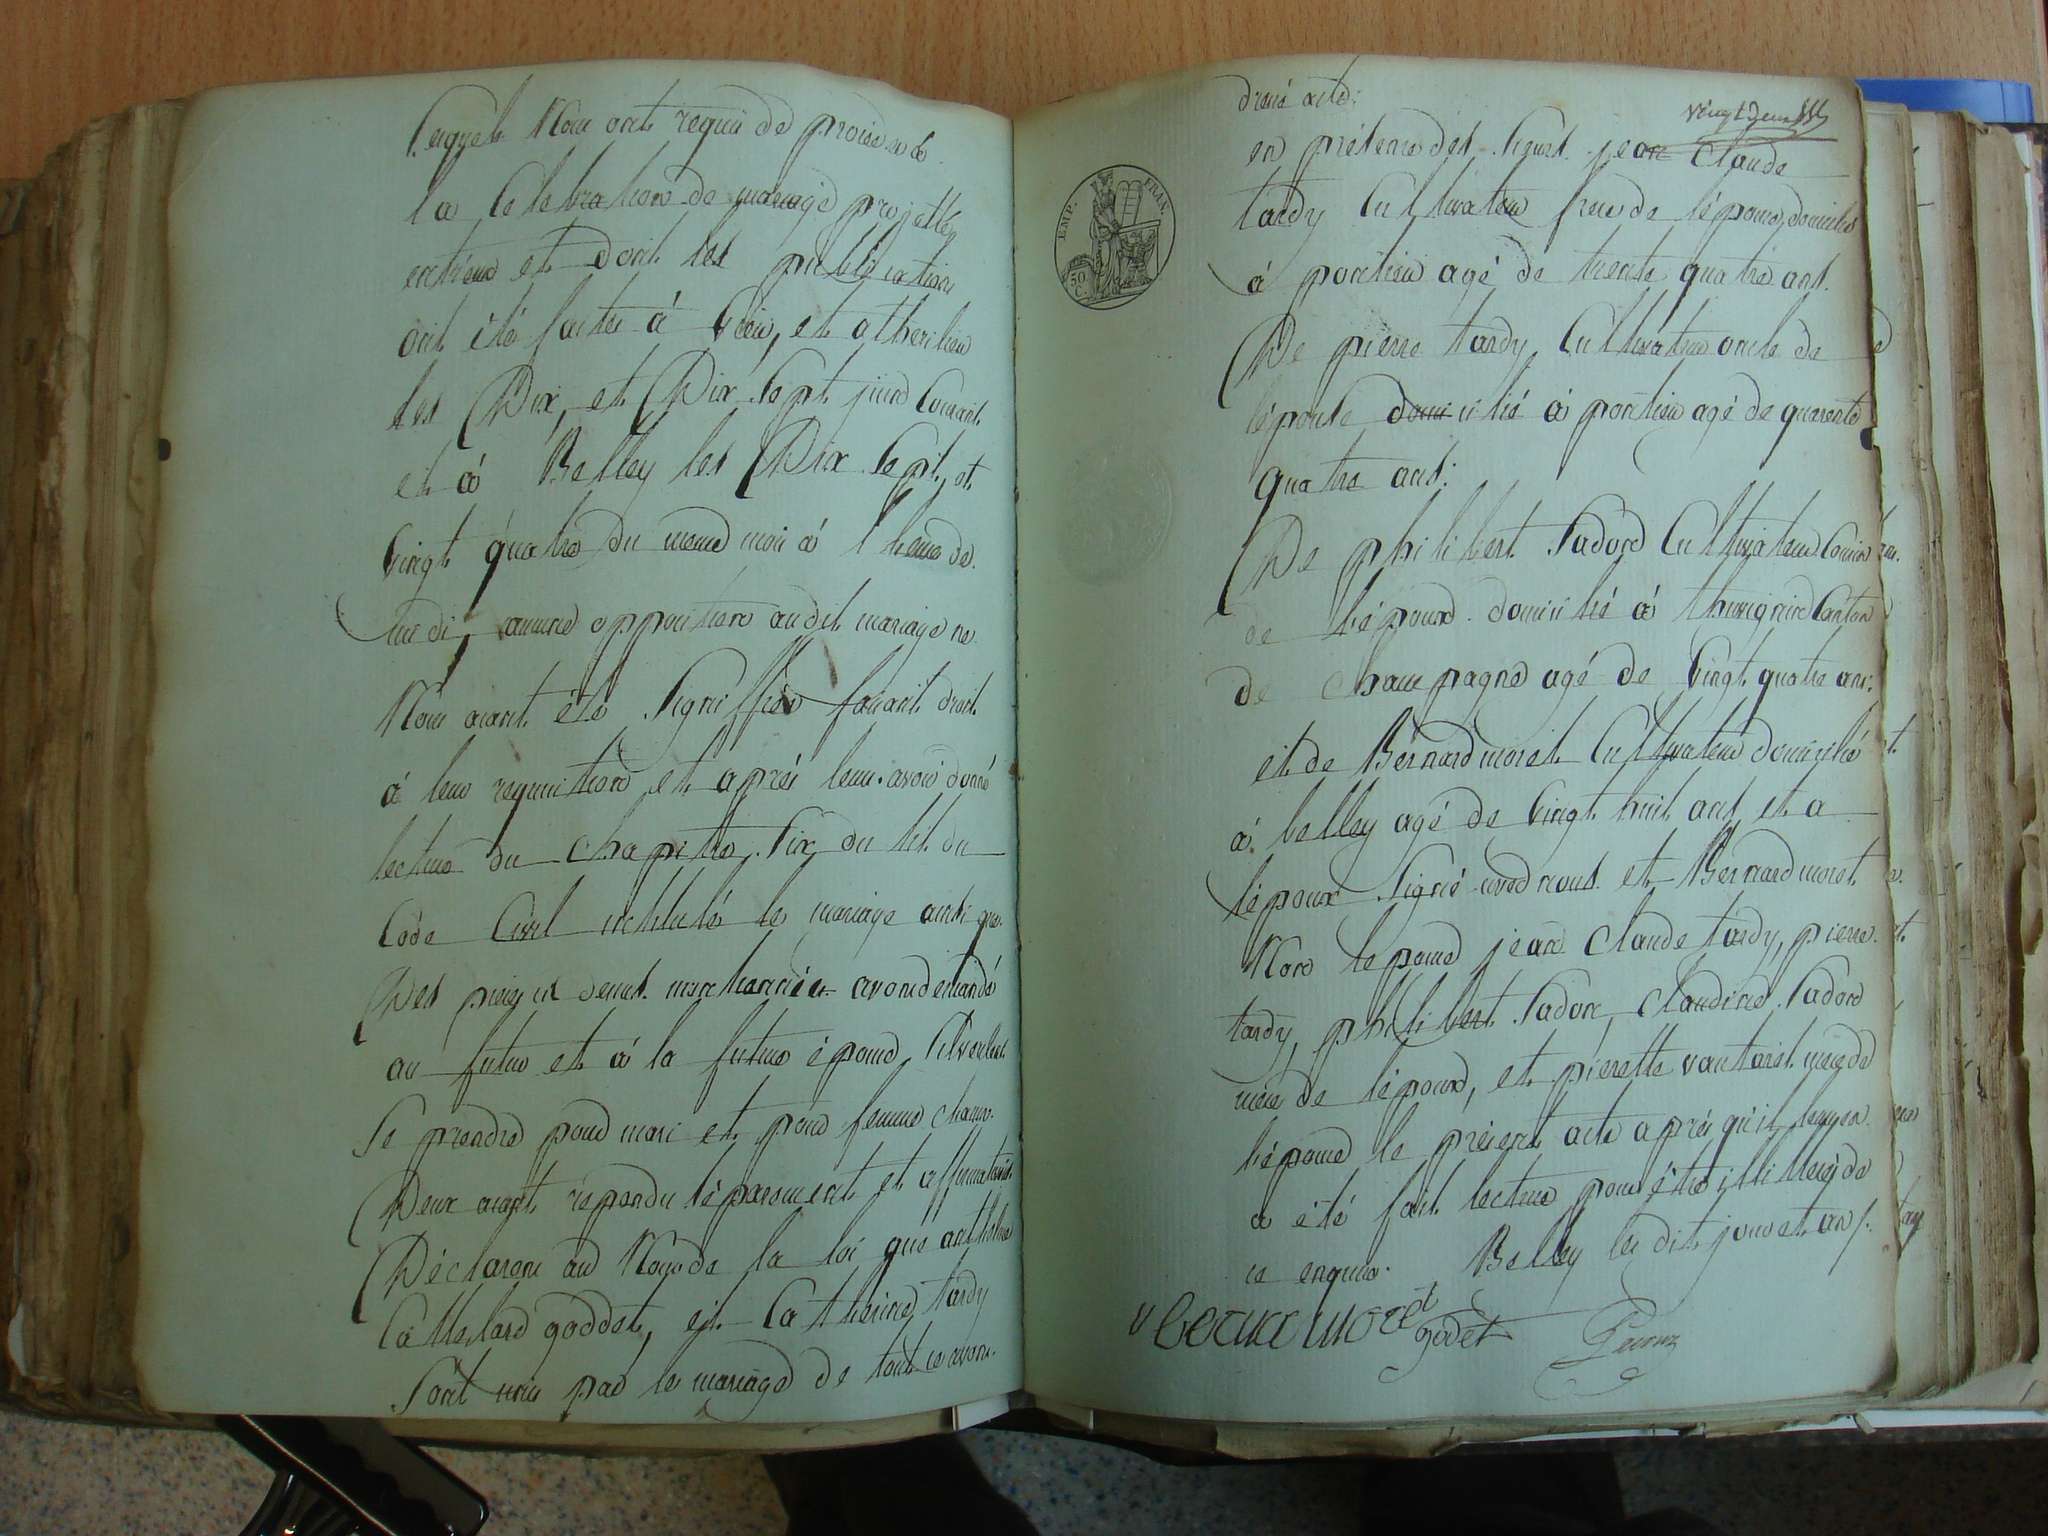 Lesquels Nous ont requis de proceder
la Celebration de mariage projetté
entreux et dont les publications
ont été faites à Céin, et
les Dix, et Dix Sept juin Courant
et à Belley les Dix Sept, et
Vingt quatre du meme moi à l'heure de
midi, aucune opposition audit mariage ne
Nous aiant été Signiffiée faisant droit
à leur requisition et après leur avoir donné
lecture du Chapitre Six du tit du
Code Civil intitulé le mariage ainsi que
Des pieces avons demandé
au futur et à la future épouse S'il veulent
Se prendre pour mari et pour femme chacun
Deux aiant répondu séparement et affirmativt.
Déclarons au Nom de la loi que anthelme
Cattelard goddet, et Catherine tardy
Sont unis par le mariage de tout ce avons
dressé acte:
Vingt deux
en présence des Sieurs jean Claude
tardy Cultivateur frere de l'épouse, domicilié
à pontieu agé de trente quatre ans.
De pierre tardy Cultivateur oncle de
l'épouse domicilié à pontieu agé de quarente
quatre ans:
De philibert Sadon Cultivateur Cousin
de l'époux domicilié à Canton
de Champagne agé de Vingt quatre ans.
et de Bernard moret Cultivateur domicilié
à belley agé de Vingt huit ans et a
l'époux Signé avec nous et Bernard moret
Non l'épouse jean Claude tardy, pierre
tardy, philibert Sadon, Claudine Sadon
mere de l'époux, et pierette vautaret mere de
l'épouse le présent acte après qu'il leur en
a été fait lecture pour être illitteré de
ce enquis. Belley les dit jour et an
EMP. FRAN.
50 C.
Bernar moret
godet